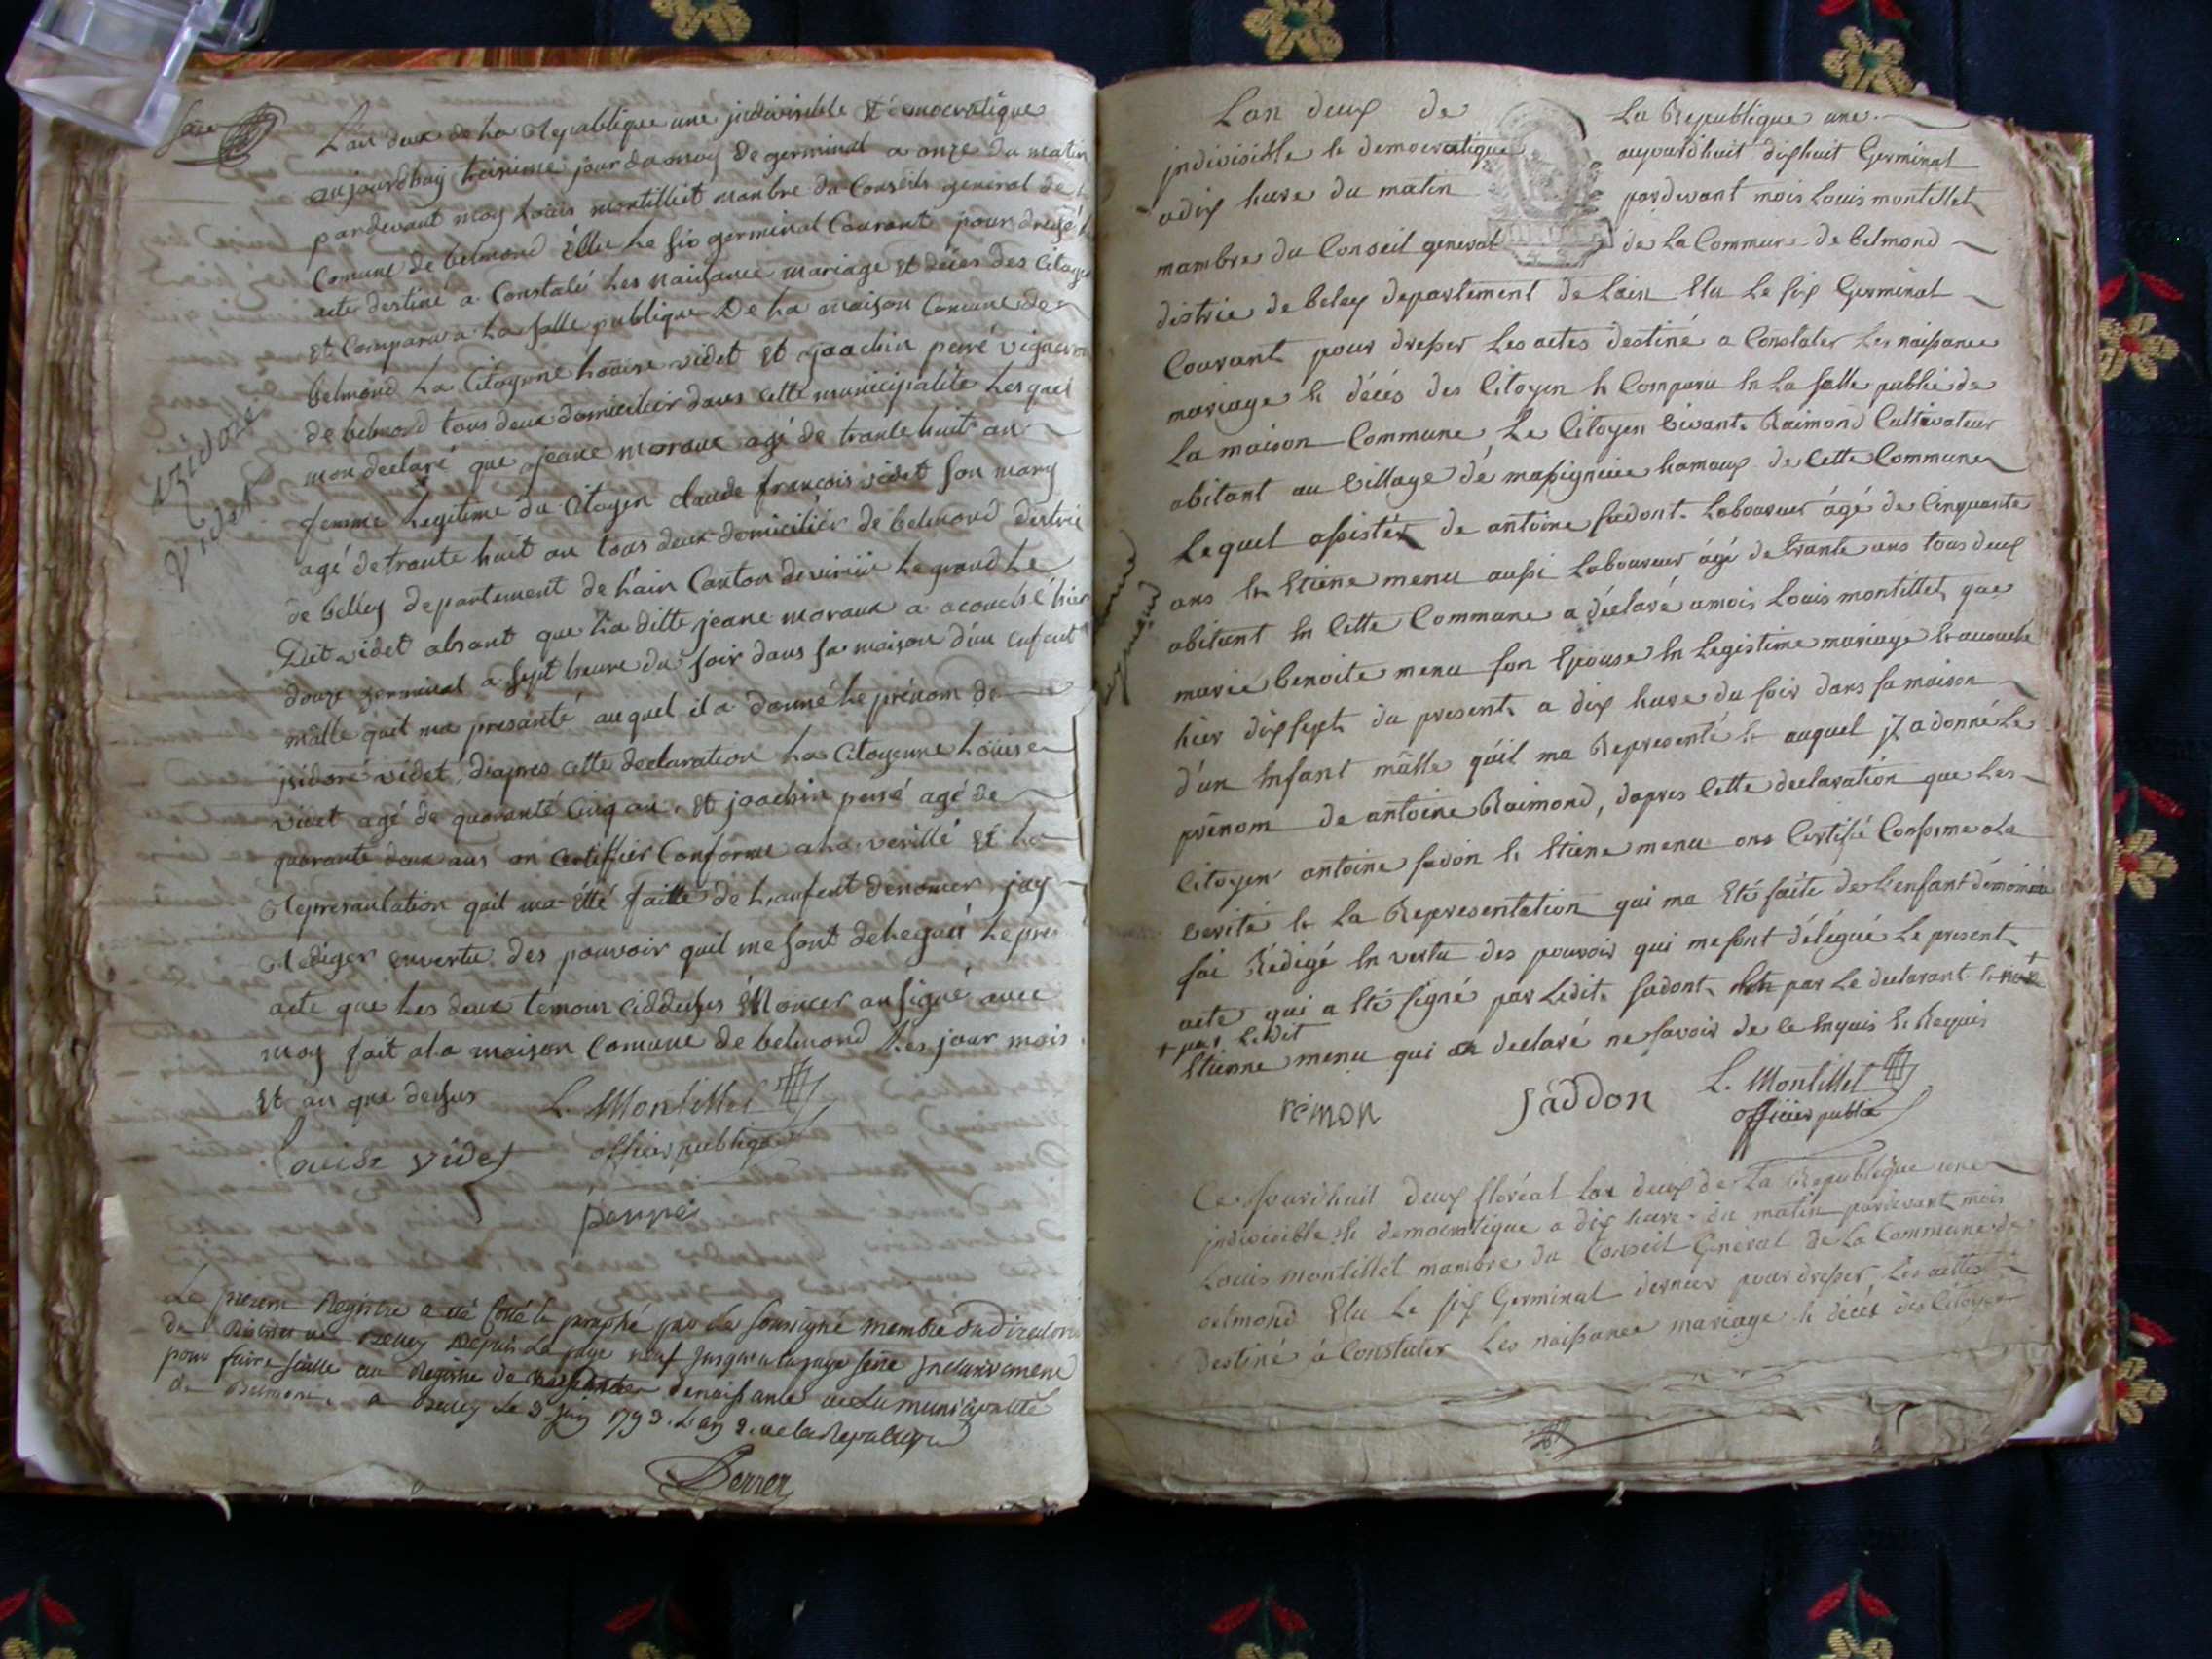 L'an deux de La Republique une jndivisible Et democratique
aujourdhuy treisieme jour du moy de germinal a onze du matin
pardevant moy Loüis montilliet manbre du Conseils general de
Comune de belmond Ellu Le sis germinal Courant pour dressé
acte destiné a Constalé Les naissance mariage Et décès des Citoye
Et Comparu a La salle publique De La maison Comune de
belmond La Citoyene Loüise videt Et joachin peiré vigneron
de belmond tous deux domicilier dans cette municipalité Lesquel
mon declaré que jeane moraux agé de trante huit an
femme Legitime du Citoyen claude françois videt son mary
agé de trante huit an tous deux domiciliér de belmond distric
de belley departement de L'ain Canton de virieu Le grand Le
Dit videt absant que La ditte jeane moraux a acouché hier
douze germinal a sept heure du soir dans sa maison d'un enfant
mâlle quil ma presanté auquel il a donné Le prénom de
jsidore videt, d'apres cette declaration La Citoyenne Loüise
videt agé de quarante Cinq an, Et joachin peiré agé de
quarante deux ans on Certiffier Conforme a La verillé Et La
Represantation quil ma Etté faitte de L'anfent denomer jay
Rediger envertu des pouvoir quil me sont delegué Le pres
acte que Les deux témoin ciddessus Enoncer on signé avec
moy fait a La maison Comune de belmond Les jour mois
Et an que dessus L. Montillet
officier publique
Louise videt
perré
jzidore
videt
Le présent Registre a été Cotté et paraphé par Le soussigné membre du Directoire
du District de Belley Depuis La page neuf jusqu'a la page seize Inclusivement
pour faire suitte au Registre de naissance de la municipalité
de Belmont. a Belley Le 3 Juin 1793. L'an 2. de la Republique
Ferrer
Lan deux de La Republique une
jndivisible et democratique aujourdhuit dixhuit Germinal
a dix hure du matin pardevant mois Louis montillet
mambre du Conseil general de La Commune de belmond
distric de beley departement de Lain Elu Le six Germinal
Courant pour dresser Les actes destiné a Constater Les naissance
mariage et décés des Citoyen et Comparu en La salle public de
La maison Commune Le Citoyen vivant Raimond Cultivateur
abitant au village de massignieu hamaux de Cette Commune
Lequel assistér de antoine sadont Laboureur âgé de Cinquante
ans et Etiene menu aussi Laboureur âgé de trante ans tous deux
abitant en Cette Commune a déclaré a mois Louis montillet que
marie benoite menu son Epouse en Legistime mariage et acouché
hier dixsept du present a dix hure du soir dans sa maison
d'un Enfant mâlle qu'il ma Representé et auquel jl a donné Le
prénom de antoine Raimond, dapres Cette declaration que Les
Citoyen antoine sadon et Etiene menu ons Certifié Conforme a La
verité et La Representation qui ma Eté faite de L'enfant dénommé
jai Rédigé en vertu des pouvoir qui me sont délégué Le present
acte qui a Eté signé par Ledit sadont par Le declarant et non
+ par Ledit
Etienne menu qui a declaré ne savoir de ce Enquis et Requis
rémon saddon L. Montillet
officier public
Cejourdhuit deux floréal Lan deux de La Republique une
jndivisible et democratique a dix hure du matin pardevant mois
Louis montillet mambre du Conseil General de La Commune de
belmond Elu Le six Germinal dernier pour dresser Les actes
destiné à Constater Les naissance mariage et décés des Citoyen